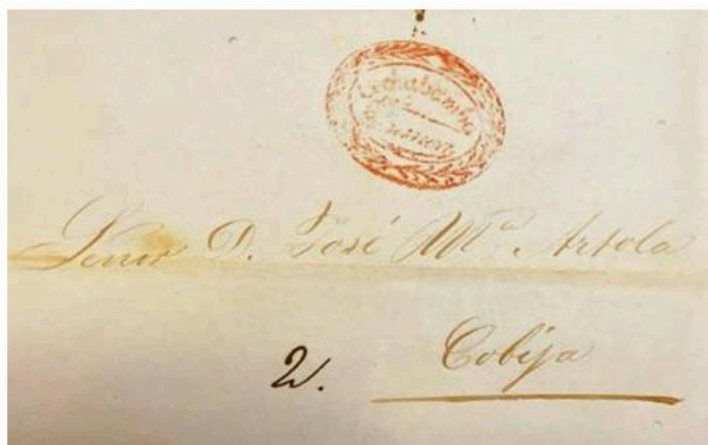 Cochabamba
Señor D. José Mª Artola
2.
Cobija